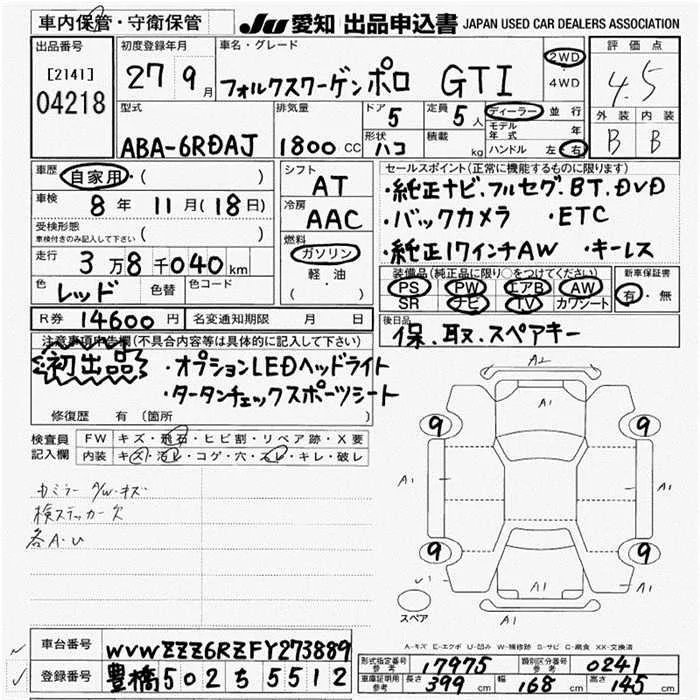 車内保管・守衛保管
JU 愛知 出品申込書 JAPAN USED CAR DEALERS ASSOCIATION
出品番号
[2141]
04218
初度登録年月
27 9月
車名・グレード
フォルクスワーゲン ポロ GTI
2WD
・
4WD
評価点
4.5
外装 内装
B B
型式
ABA-6RDAJ
排気量
1800 CC
ドア
5
定員
5人
形状
ハコ
積載
kg
ディーラー 並行
モデル年式 年
ハンドル 左・右
車歴
自家用・( )
車検
8年 11月(18日)
受検形態
車検付きのみ記入して下さい ( )
走行
3万8千040km
色
レッド
色替
色コード
シフト
AT
冷房
AAC
燃料
ガソリン
軽・油
( )
セールスポイント(正常に機能するものに限ります)
・純正ナビ.フルセグ.BT.DVD
・バックカメラ ・ETC
・純正17インチAW ・キーレス
装備品(純正品に限り○をつけてください)
PS PW エアB AW
SR ナビ TV カワシート
新車保証書
有・無
R券 14600円
名変通知期限 月 日
後日品
保.取.スペアキー
注意事項申告欄(不具合内容等は具体的に記入して下さい)
初出品
・オプションLEDヘッドライト
・タータンチェックスポーツシート
修復歴 有 〔箇所 〕
検査員
記入欄
FW キズ・飛石・ヒビ割・リペア跡・X要
内装 キズ・汚レ・コゲ・穴・スレ・キレ・破レ
A/W・キズ
検ステッカー欠
各A・U
A2
A1
9 9
A1 A1
9 9
A1
A1
スペア
A-キズ E-エクボ U-凹み W-補修跡 S-サビ C-腐食 XX-交換済
車台番号 WVWZZZ6RZFY273889
登録番号 豊橋502ち5512
形式指定番号
参考
17975
類別区分番号
参考
0241
車庫証明用
参考
長さ 399cm 幅 168cm 高さ 145cm